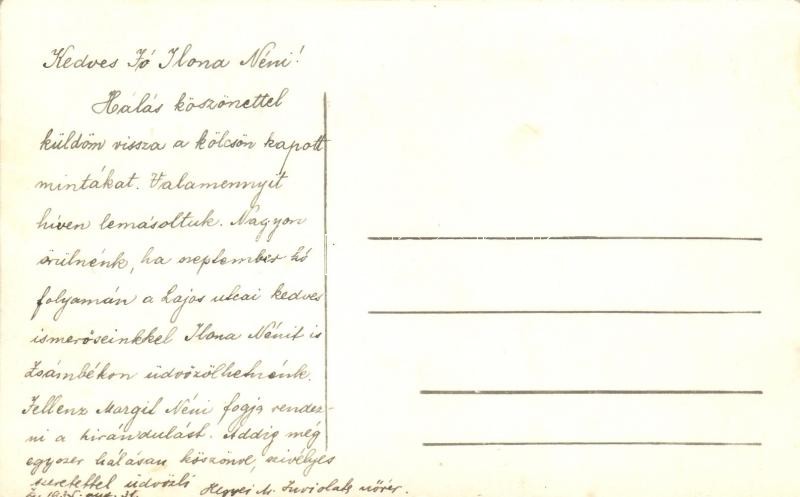 Kedves Jó Ilona Néni!
Hálás köszönettel
küldöm vissza a kölcsön kapott
mintákat. Valamennyit
híven lemásoltuk. Nagyon
örülnénk, ha szeptember hó
folyamán a Lajos utcai kedves
ismerőseinkkel Ilona Nénit is
Zsámbékon üdvözölhetnénk.
Fellenz Margit Néni fogja rendez-
ni a kirándulást. Addig még
egyszer hálásan köszönve, szívélyes
szeretettel üdvözli
Hegyei M. Inviolata nővér.